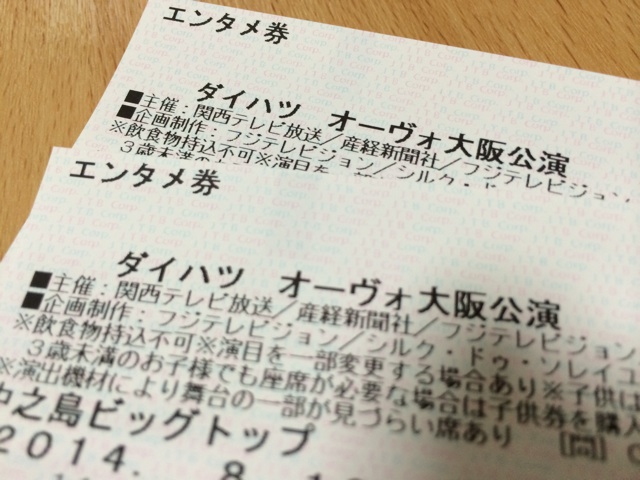 エンタメ券
ダイハツ オーヴォ大阪公演
■主催:関西テレビ放送/産経新聞社/フジテレビジョン
■企画制作:フジテレビジョン/シルク・ドゥ
※飲食物持込不可※演目を
3歳未満の
エンタメ券
ダイハツ オーヴォ大阪公演
■主催:関西テレビ放送/産経新聞社/フジテレビジョン
■企画制作:フジテレビジョン/シルク・ドゥ・ソレイユ
※飲食物持込不可※演目を一部変更する場合あり※子供は
3歳未満のお子様でも座席が必要な場合は子供券を購入
※演出機材により舞台の一部が見づらい席あり [問]
中之島ビッグトップ
2014. 8.